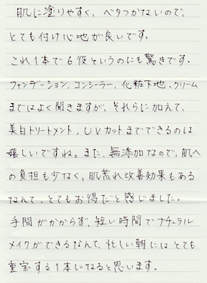 肌に塗りやすく、ベタつかないので、
とても付け心地が良いです。
これ1本で6役というのにも驚きです。
ファンデーション、コンシーラー、化粧下地、クリーム
まではよく聞きますが、それらに加えて、
美白トリートメント、UVカットまでできるのは
嬉しいですね。また、無添加なので、肌へ
の負担も少なく、肌荒れ改善効果もある
なんて、とてもお得だと感じました。
手間がかからず、短い時間でナチュラル
メイクができるなんて、忙しい朝にはとても
重宝する1本になると思います。